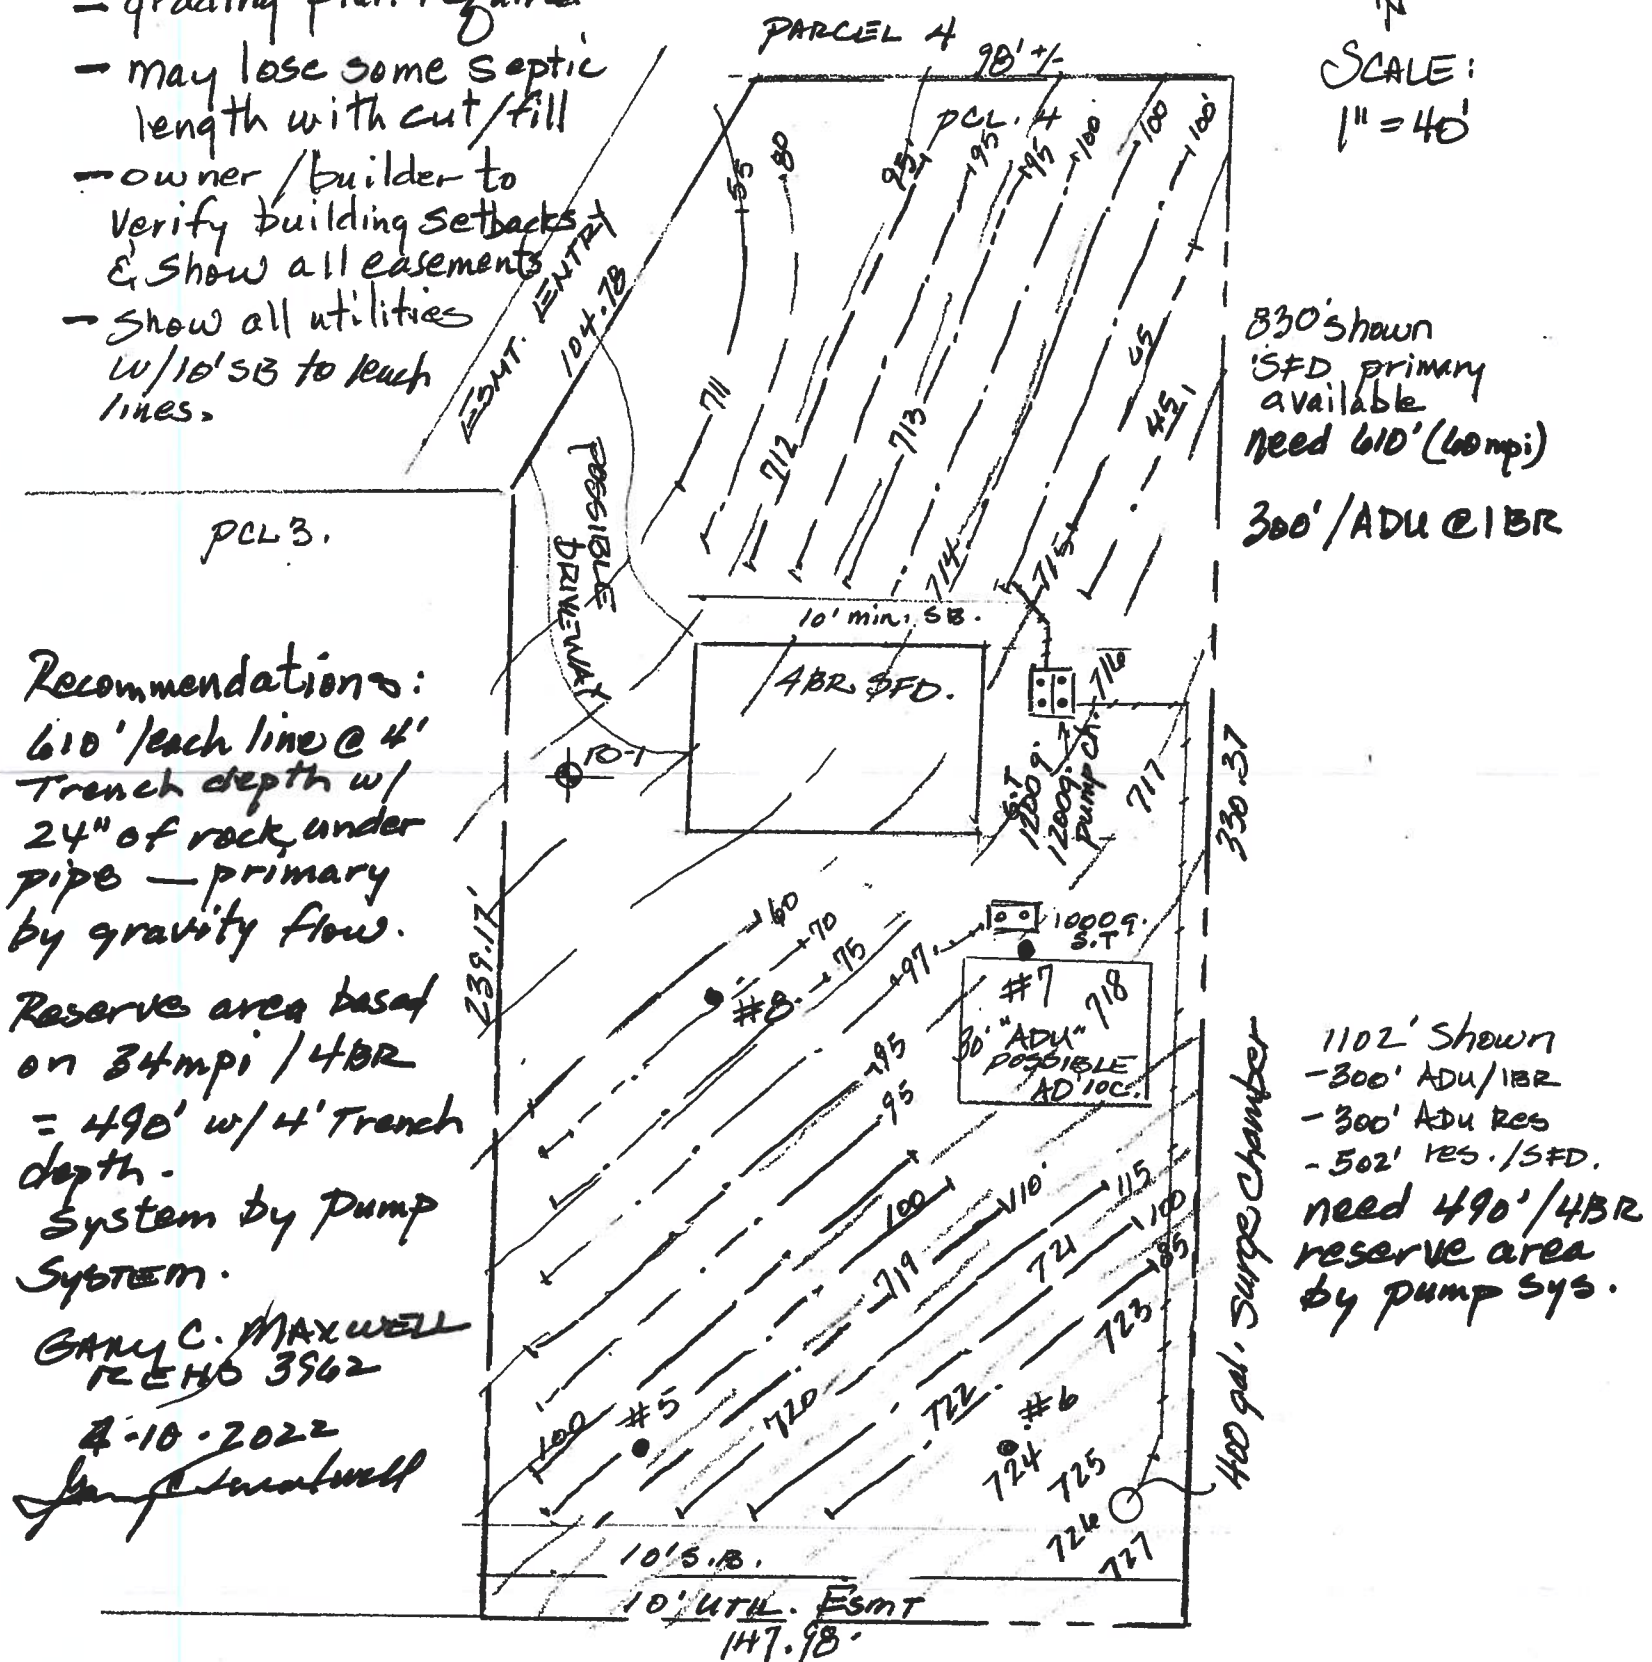 - grading plan required
- may lose some septic
length with cut/fill
- owner/builder to
verify building setbacks
& show all easements
- show all utilities
w/10' SB to leach
lines.
PARCEL 4
98' +/-
PCL. 4
SCALE:
1" = 40'
55
80
95'
95
95
100
100
100'
ESMT. ENTRY
104.78
711
712
713
714
715
716
717
65
45
830' shown
SFD primary
available
need 610' (60mpi)
300'/ADU @ 1BR
PCL 3.
POSSIBLE
DRIVEWAY
10' min. SB.
4BR. SFD.
S.T
1200g.
1200g.
pump ch.
330.37
239.17'
Recommendations:
610'/each line @ 4'
Trench depth w/
24" of rock under
pipe — primary
by gravity flow.
Reserve area based
on 34mpi/4BR
= 490' w/ 4' Trench
depth.
System by Pump
System.
GARY C. MAXWELL
REHS 3962
-10-2022
60
70
75
97
#8
1000g.
S.T
#7
718
30' "ADU"
POSSIBLE
95
95
100
110'
115
100
85
719
721
723
720
722
100
#5
#6
724
725
726
727
400 gal. Surge Chamber
1102' Shown
-300' ADU/1BR
-300' ADU Res
-502' res./SFD.
need 490'/4BR
reserve area
by pump sys.
10' S.B.
10' UTIL. Esmt
147.98'